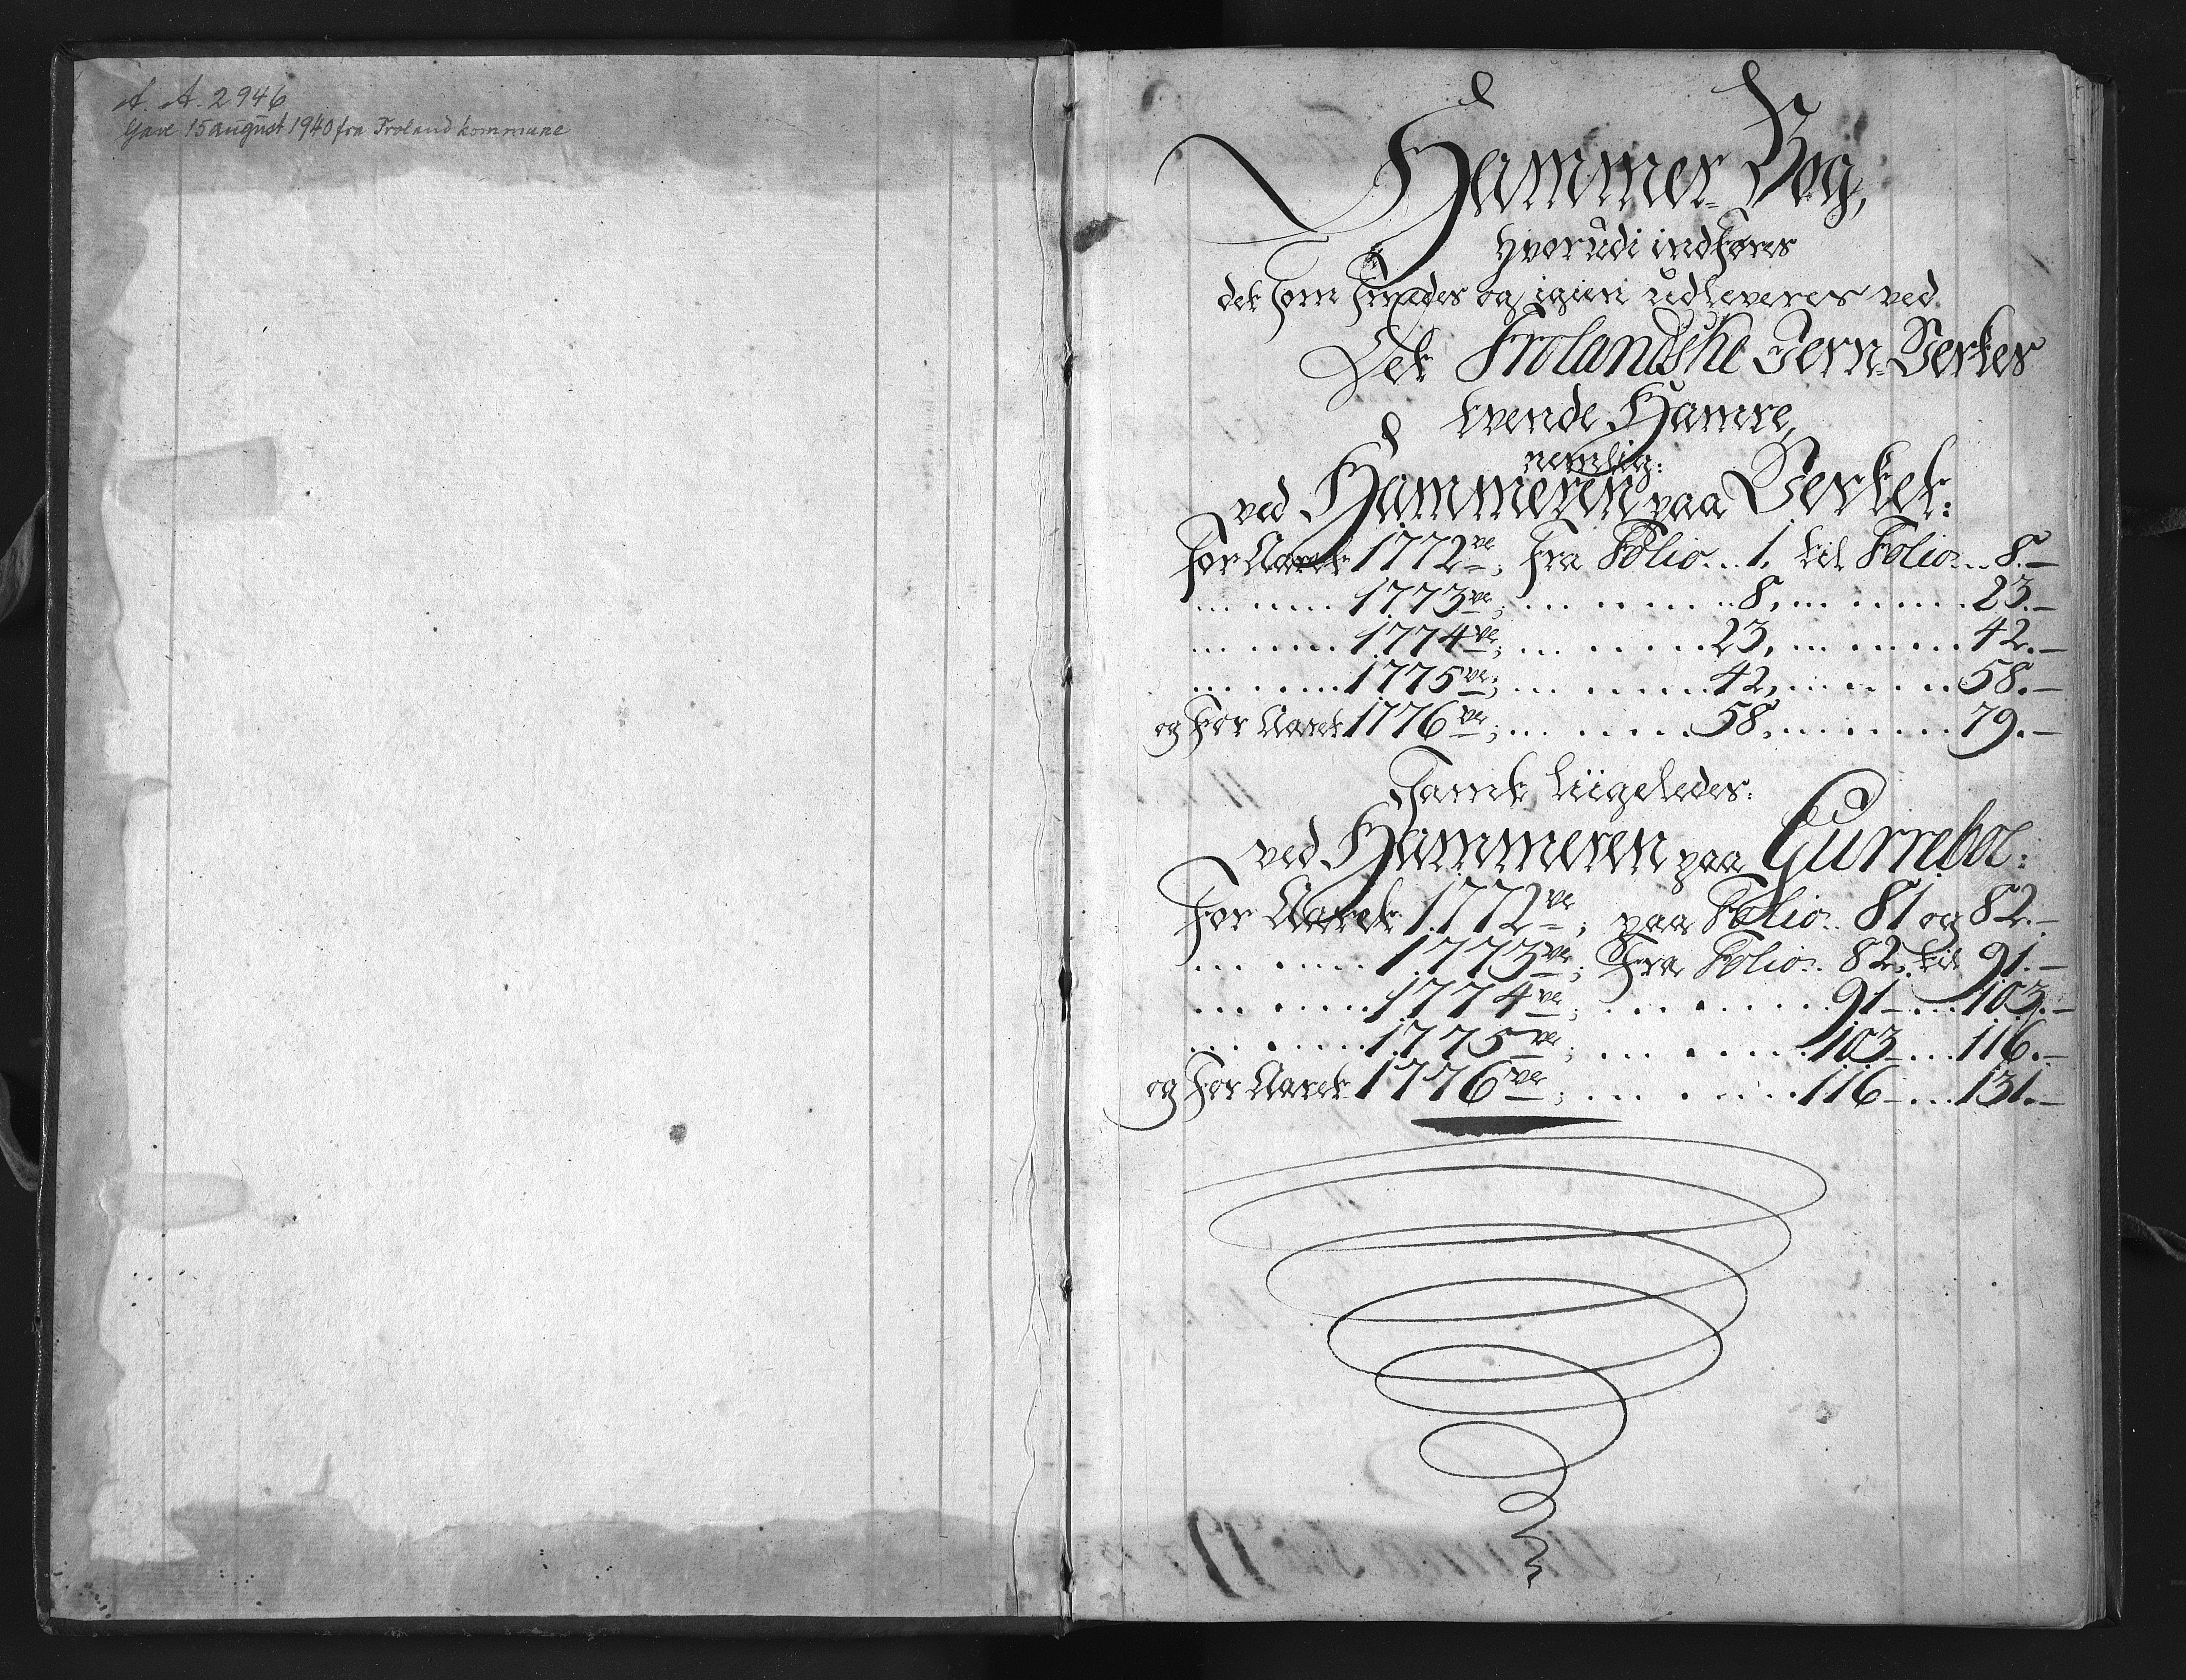 A. A. 2946
Gave 15 august 1940 fra Froland kommune
Hammer-Bog,
hvorudi indføres
det som smedes og igien udleveres ved
Det Frolandske Jern-Verkes
tvende Hamre,
nemlig:
ved Hammeren paa Verket:
for Aaret 1772ve; fra Folio... 1. til Folio... 8.-
... .... 1773ve; ... .... 8, ... .... 23.-
... .... 1774ve; ... .... 23, ... .... 42.-
... .... 1775ve; ... .... 42, ... .... 58.-
og for Aaret 1776ve; ... .... 58, ... .... 79.-
Samt liigeledes:
ved Hammeren paa Gurreboe:
for Aaret 1772ve; paa Folio.. 81 og 82.-
... .... 1773ve; fra Folio.. 82, til 91.-
... .... 1774ve; ... .... 91-...103.-
... .... 1775ve; ... .... 103-...116.-
og for Aaret 1776ve; ... .... 116-...131.-